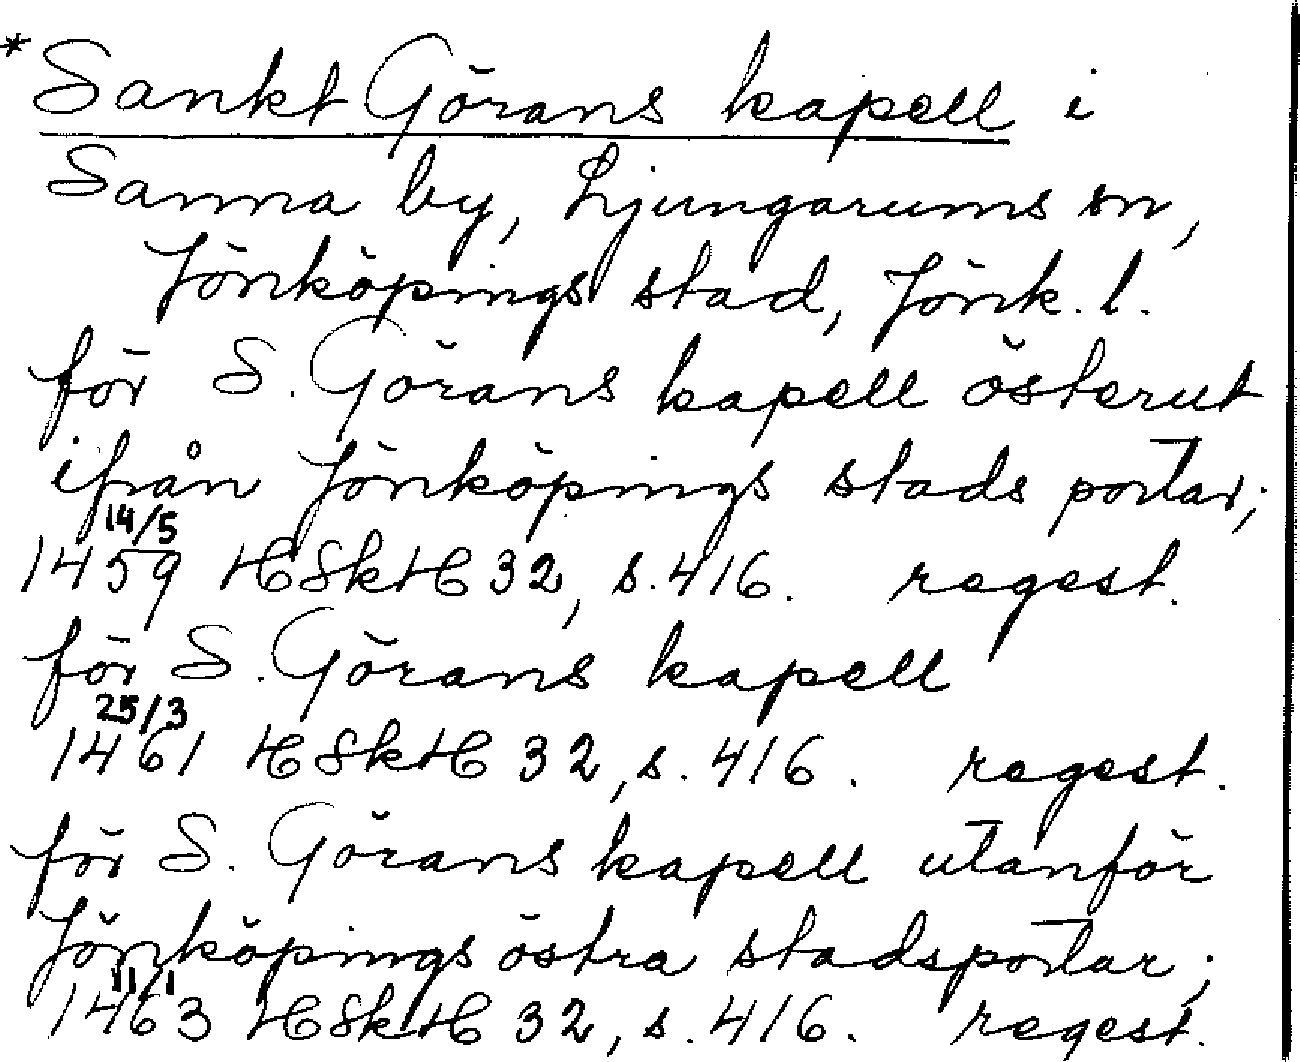 *Sankt Görans kapell i
Sanna by, Ljungarums sn,
Jönköpings stad, Jönk. l.
för S. Görans kapell österut
ifrån Jönköpings stads portar;
14/5
1459 HSkH 32, s. 416. regest.
för S. Görans kapell
25/3
1461 HSkH 32, s. 416. regest.
för S. Görans kapell utanför
Jönköpings östra stadsportar;
11/1
1463 HSkH 32, s. 416. regest.